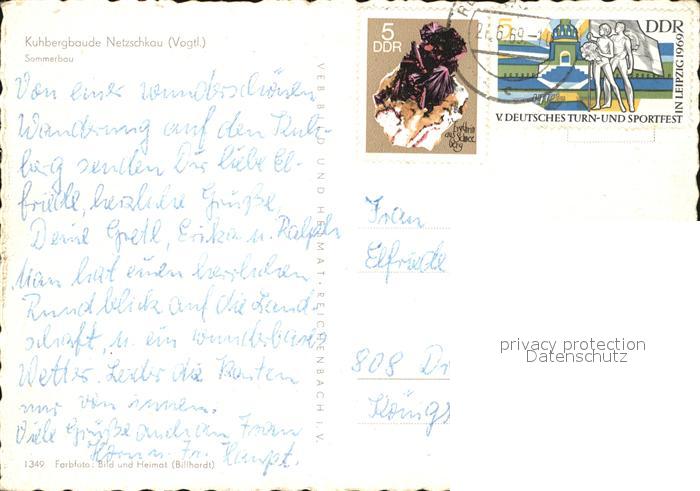 Kuhbergbaude Netzschkau (Vogtl.)
Sommerbau
Von einer wunderschönen
Wanderung auf den Kuh-
berg senden Dir liebe El-
friede, herzliche Grüße,
Deine Gretl, Erika u. Ralph
Man hat einen herrlichen
Rundblick auf die Land-
schaft u. ein wunderbares
Wetter. Leider die Karten
nur von innen.
Viele Grüße auch an Frau
Horn u. Fr. Haupt.
1349 Farbfoto: Bild und Heimat (Billhardt)
VEB BILD UND HEIMAT · REICHENBACH i. V.
5
DDR
Erythrin
aus Schnee-
berg
21.6.69-1
c
5
DDR
V. DEUTSCHES TURN- UND SPORTFEST
IN LEIPZIG 1969
Frau
Elfriede
808 Dr
Königs
privacy protection
Datenschutz